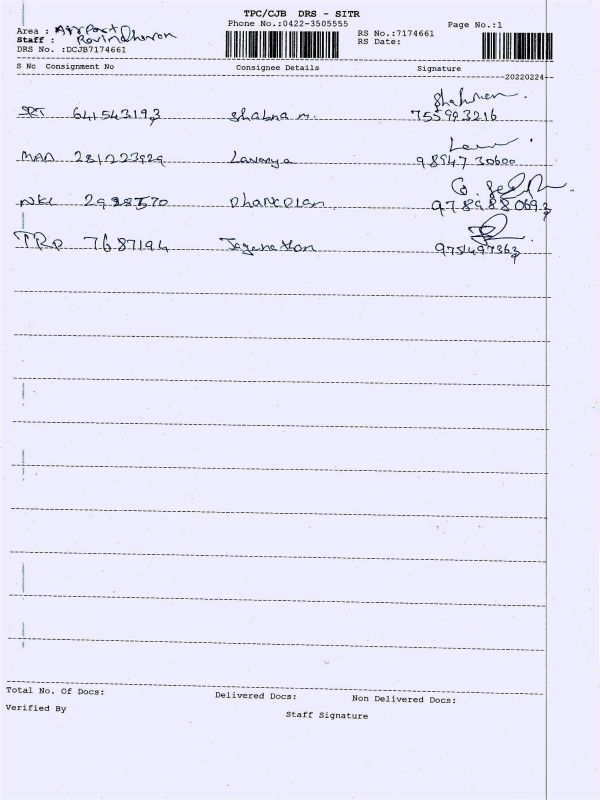 TPC/CJB DRS - SITR
Phone No.:0422-3505555
Page No.:1
Area : Airport
Staff : Ravindheran
RS No.:7174661
RS Date:
DRS No. :DCJB7174661
S No Consignment No Consignee Details Signature
20220224
SRT 641543193 Shabna m. 755993216
MAA 281223929 Lavanya 98947 30600
2928570
TRP 7687194 Jaganathan 9751497363
Total No. Of Docs: Delivered Docs: Non Delivered Docs:
Verified By Staff Signature